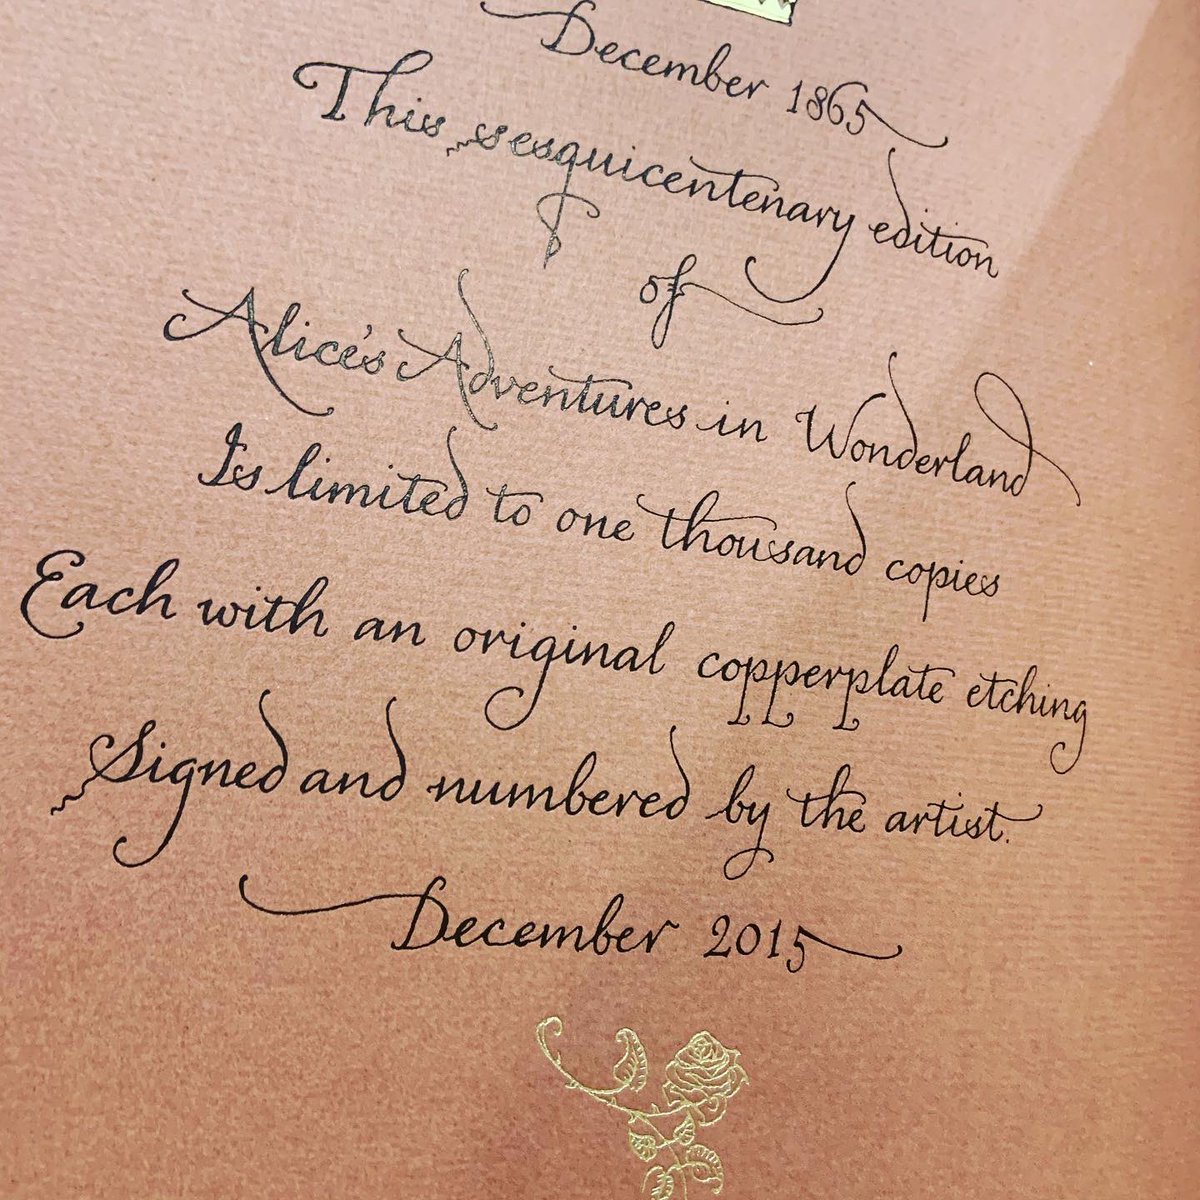 December 1865
This sesquicentenary edition
of
Alice's Adventures in Wonderland
Is limited to one thousand copies
Each with an original copperplate etching
Signed and numbered by the artist.
December 2015